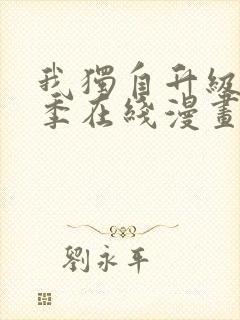 我獨自升級
季在綫漫畫
劉永平